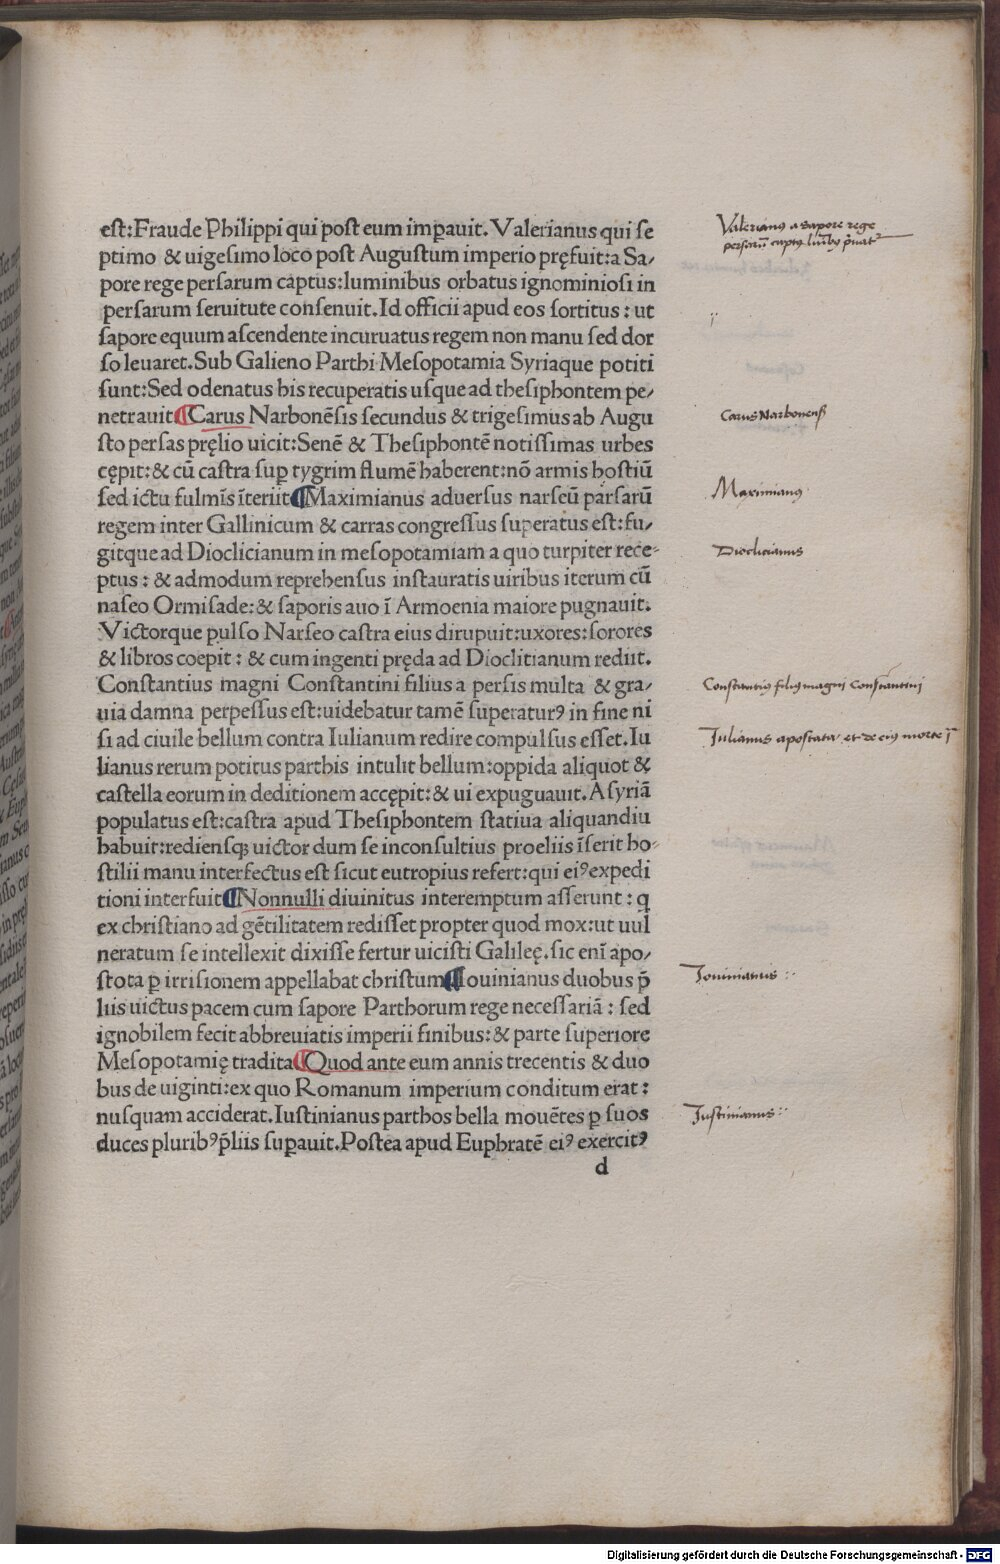 est:Fraude Philippi qui post eum imꝑauit. Valerianus qui se
ptimo & uigesimo loco post Augustum imperio pręfuit:a Sa/
pore rege persarum captus:luminibus orbatus ignominiosi in
persarum seruitute consenuit. Id officii apud eos sortitus : ut
sapore equum ascendente incuruatus regem non manu sed dor
so leuaret. Sub Galieno Parthi Mesopotamia Syriaque potiti
sunt:Sed odenatus his recuperatis usque ad thesiphontem pe/
netrauit ¶Carus Narbonēsis secundus & trigesimus ab Augu
sto persas pręlio uicit:Senē & Thesiphontē notissimas urbes
cępit:& cū castra suꝑ tygrim flumē haberent:nō armis hostiū
sed ictu fulmīs īteriit ¶Maximianus aduersus narseū parsarū
regem inter Gallinicum & carras congressus superatus est:fu/
gitque ad Dioclicianum in mesopotamiam a quo turpiter rece-
ptus : & admodum reprehensus instauratis uiribus iterum cū
naseo Ormisade:& saporis auo ī Armoenia maiore pugnauit.
Victorque pulso Narseo castra eius dirupuit:uxores:sorores
& libros coepit : & cum ingenti pręda ad Dioclitianum rediit.
Constantius magni Constantini filius a persis multa & gra/
uia damna perpessus est:uidebatur tamē superaturꝰ in fine ni
si ad ciuile bellum contra Iulianum redire compulsus esset. Iu
lianus rerum potitus parthis intulit bellum:oppida aliquot &
castella eorum in deditionem accępit:& ui expuguauit. Asyriā
populatus est:castra apud Thesiphontem statiua aliquandiu
habuit:rediensqꝫ uictor dum se inconsultius proeliis īserit ho-
stilii manu interfectus est sicut eutropius refert:qui eiꝰ expedi
tioni interfuit ¶Nonnulli diuinitus interemptum asserunt : q
ex christiano ad gētilitatem redisset propter quod mox:ut uul
neratum se intellexit dixisse fertur uicisti Galileę. sic enī apo/
stota ꝑ irrisionem appellabat christum ¶Iouinianus duobus p̄
liis uictus pacem cum sapore Parthorum rege necessariā : sed
ignobilem fecit abbreuiatis imperii finibus:& parte superiore
Mesopotamię tradita ¶Quod ante eum annis trecentis & duo
bus de uiginti:ex quo Romanum imperium conditum erat :
nusquam acciderat. Iustinianus parthos bella mouētes ꝑ suos
duces pluribꝰ p̄liis suꝑauit. Postea apud Euphratē eiꝰ exercitꝰ
d
Valerianus a sapore rege
persarū captus lūibꝰ p̄uatꝰ
Carus Narbonensis
Maximianus
Dioclicianus
Constantiꝰ filiꝰ magni Constantini
Iulianus apostata et de eiꝰ morte
Iouinianus :
Iustinianus :
Digitalisierung gefördert durch die Deutsche Forschungsgemeinschaft - DFG